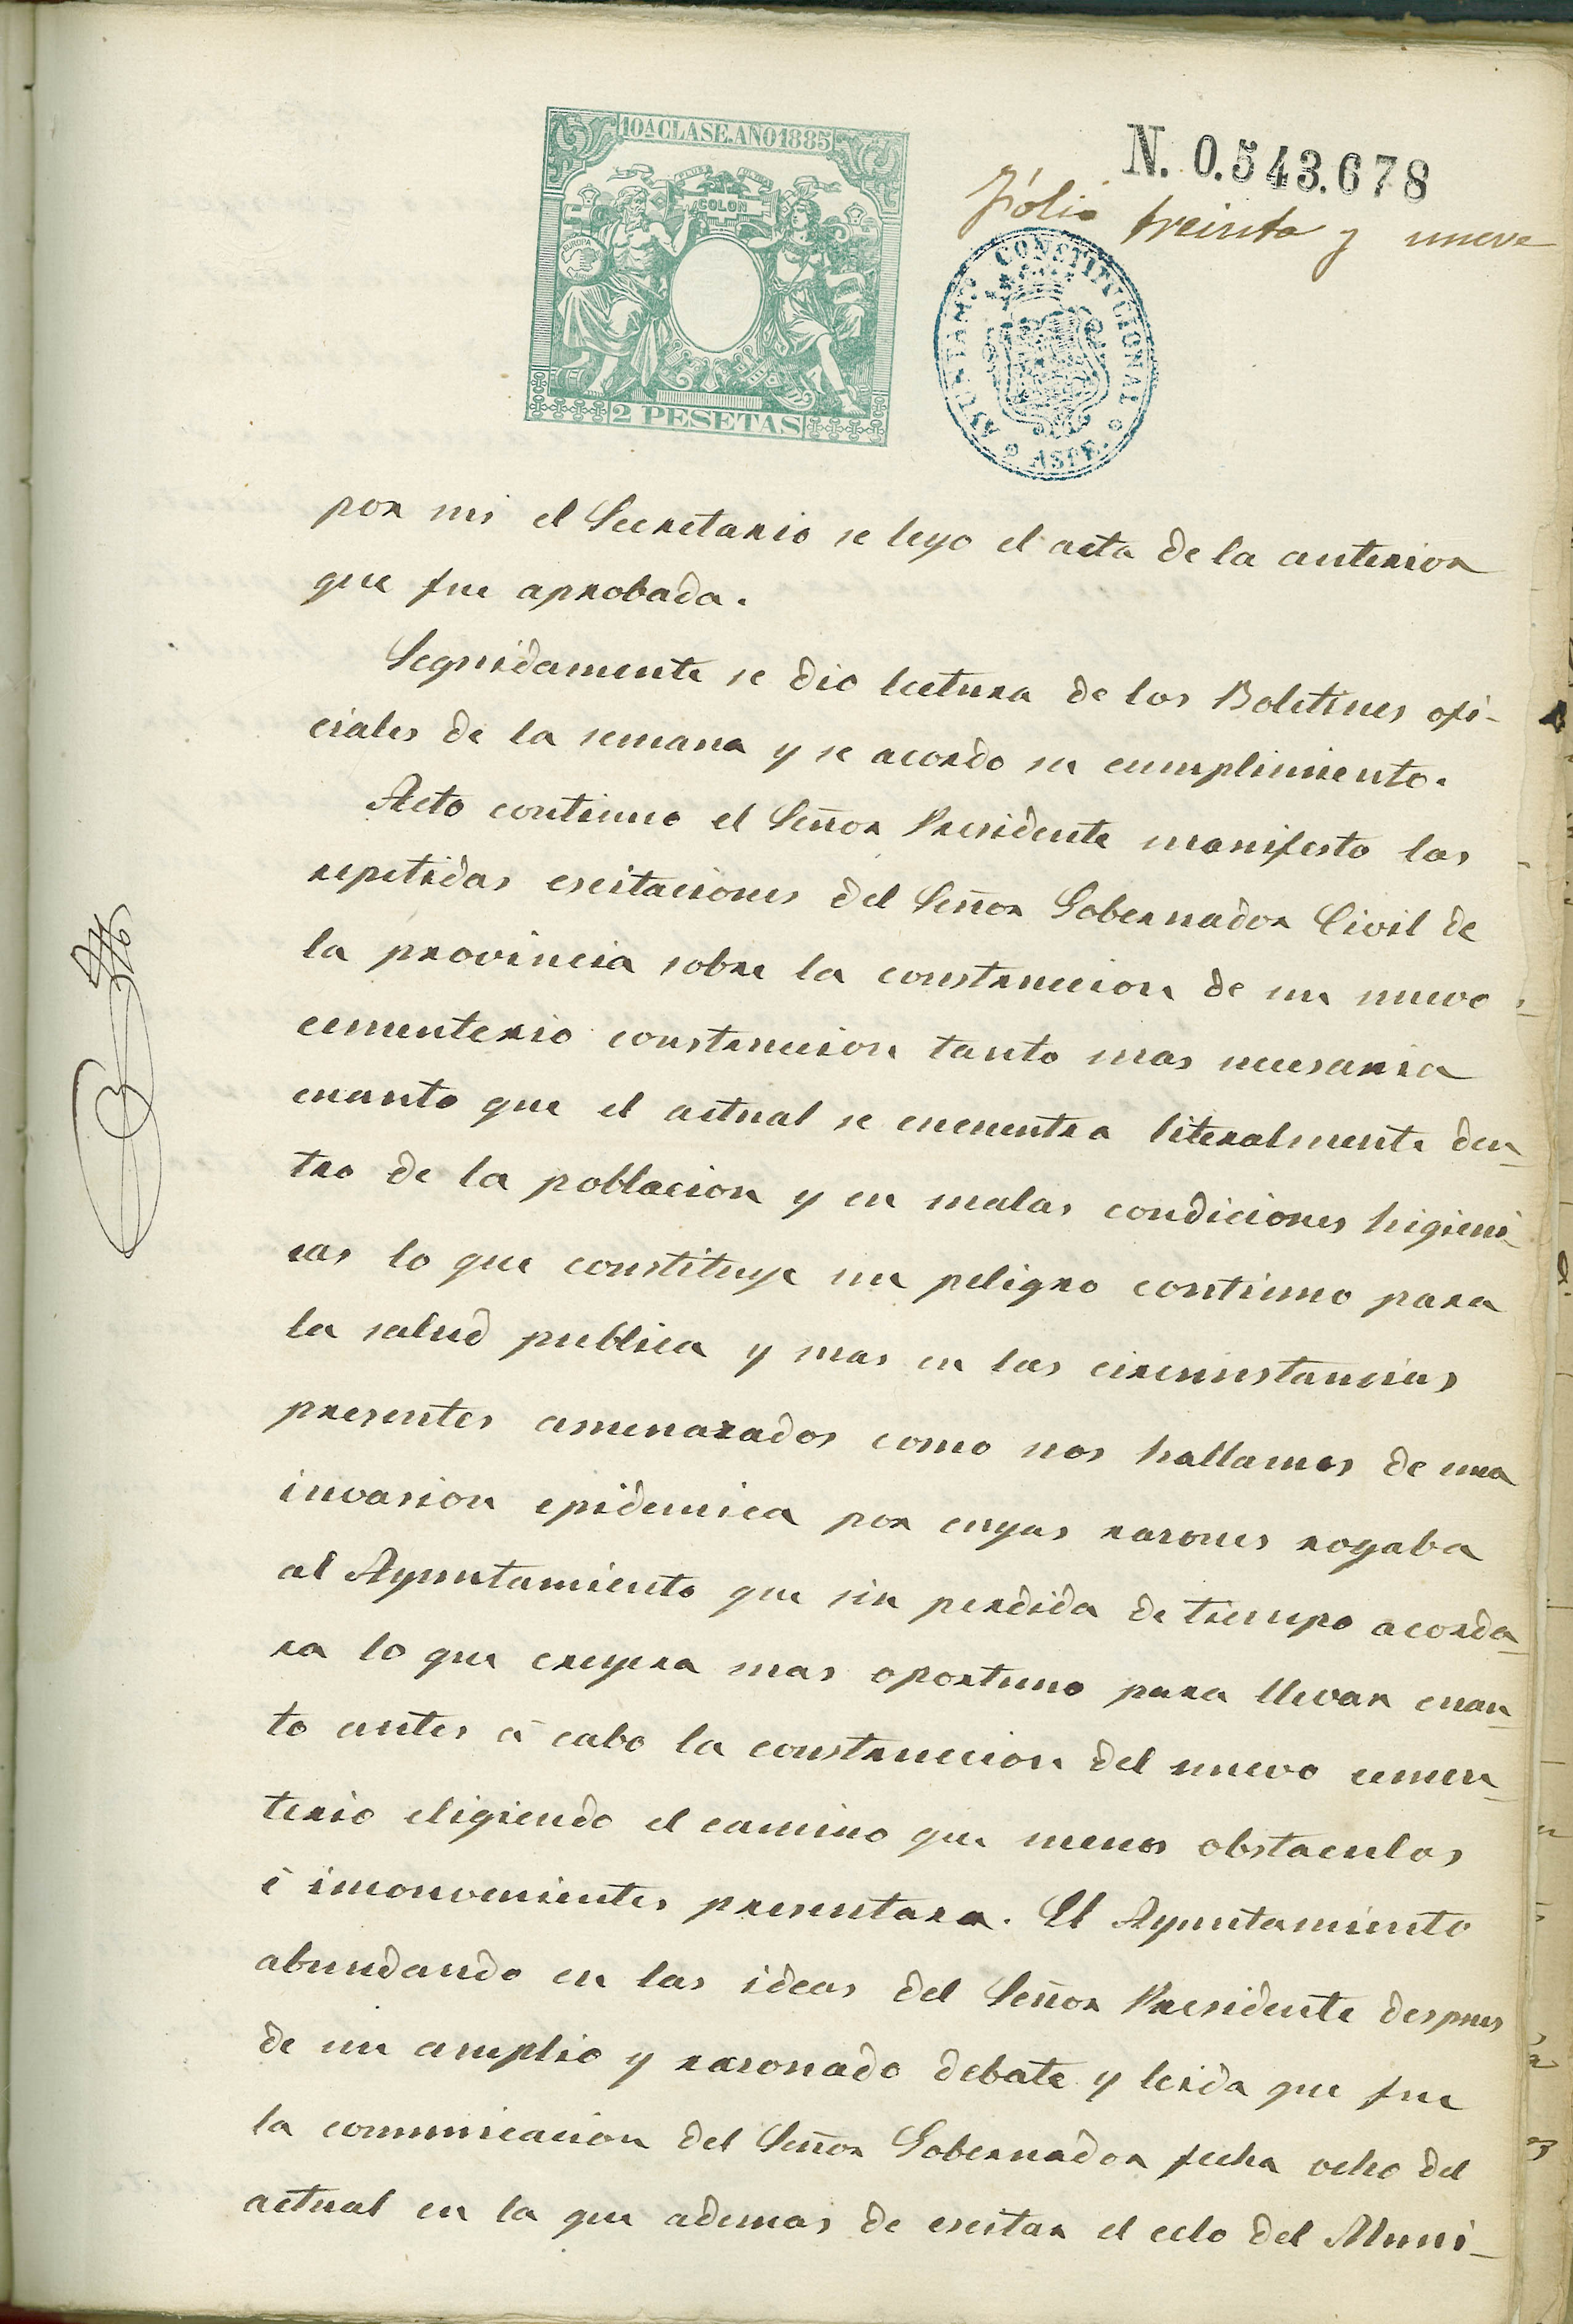 10ª CLASE. AÑO 1885
COLON
EUROPA
2 PESETAS
N. 0.543.678
Fólio treinta y nueve
AYUNTAM.TO CONSTITUCIONAL
ASPE.
por mi el Secretario se leyo el acta de la anterior
que fue aprobada.
Seguidamente se dio lectura de los Boletines ofi-
ciales de la semana y se acordo su cumplimiento.
Acto continuo el Señor Presidente manifesto las
repetidas escitaciones del Señor Gobernador Civil de
la provincia sobre la construccion de un nuevo
cementerio construccion tanto mas necesaria
cuanto que el actual se encuentra literalmente den-
tro de la poblacion y en malas condiciones higieni-
cas lo que constituye un peligro continuo para
la salud publica y mas en las circunstancias
presentes amenazados como nos hallamos de una
invasion epidemica por cuyas rasones rogaba
al Ayuntamiento que sin perdida de tiempo acorda-
ra lo que creyera mas oportuno para llevar cuan-
to antes á cabo la construccion del nuevo cemen-
terio eligiendo el camino que menos obstaculos
é inconvenientes presentara. El Ayuntamiento
abundando en las ideas del Señor Presidente despues
de un amplio y rasonado debate y leida que fue
la comunicacion del Señor Gobernador fecha ocho del
actual en la que ademas de escitar el celo del Muni-